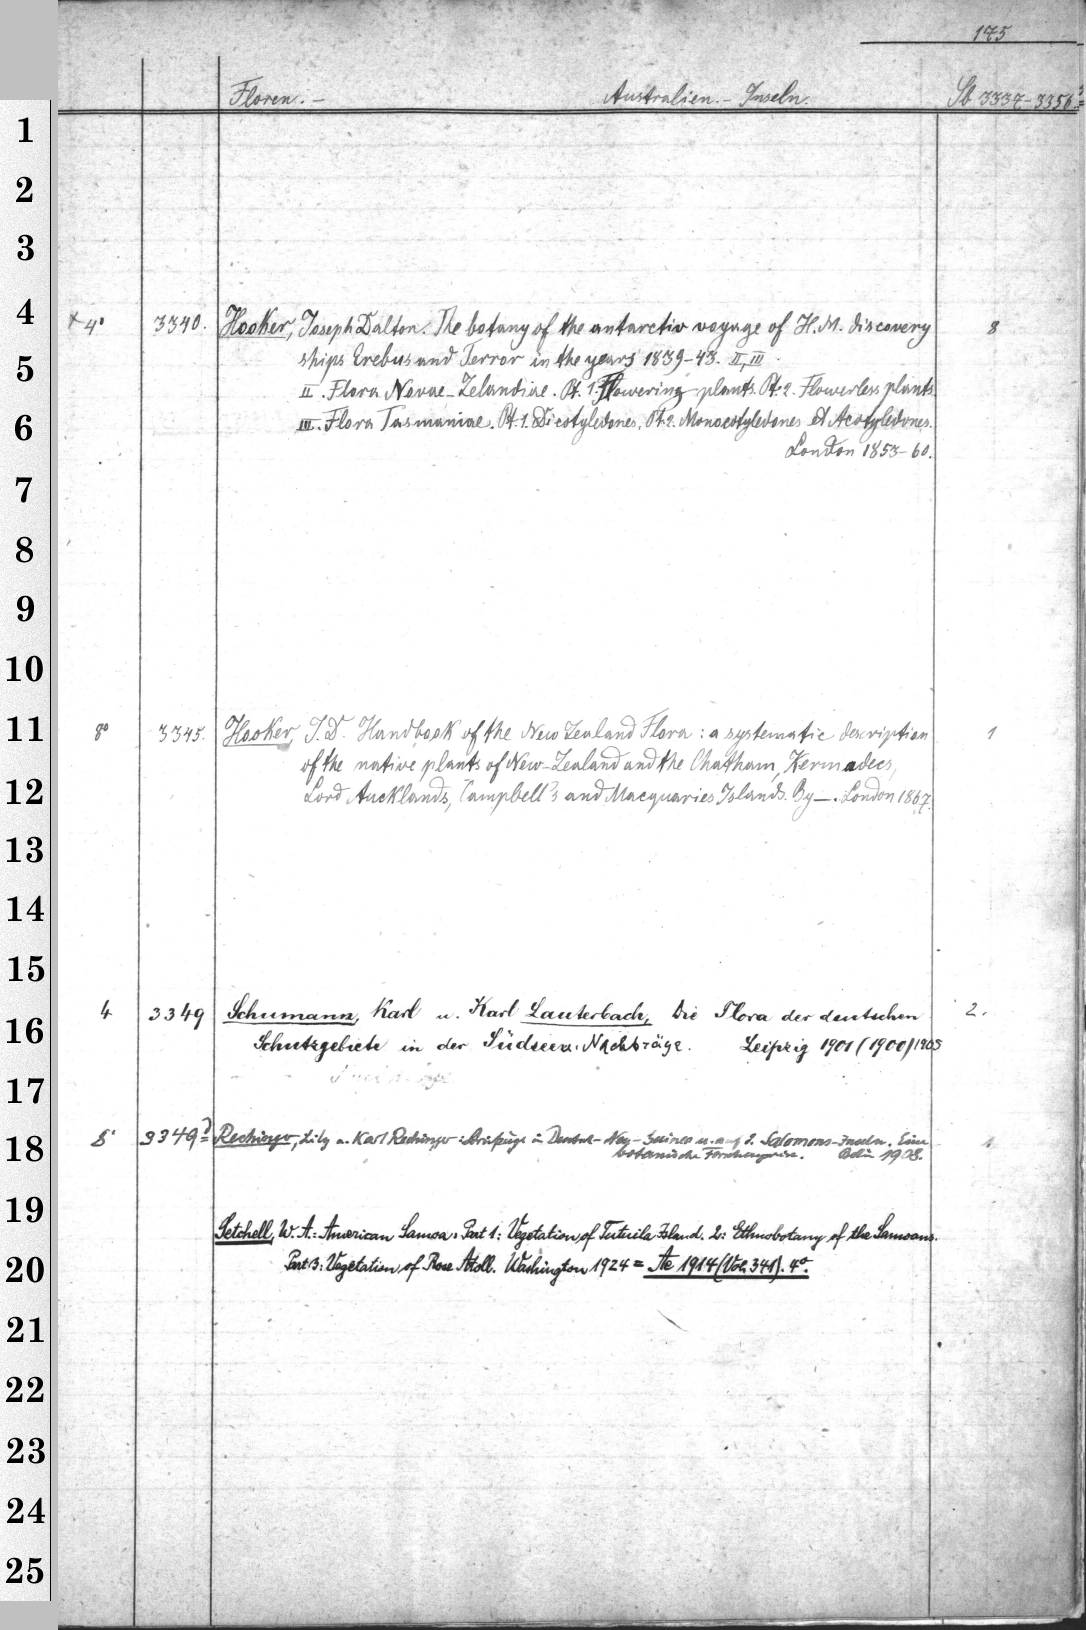 175
Floren. – Australien. – Inseln. Sb 3337-3356
1
2
3
4
× 4° 3340. Hooker, Joseph Dalton. The botany of the antarctiv voyage of H. M. discovery 8
ships Erebus and Terror in the years 1839-43. II, III.
5
II. Flora Novae-Zelandiae. Pt. 1. Flowering plants. Pt. 2. Flowerless plants.
6
III. Flora Tasmaniae. Pt. 1. Dicotyledones. Pt. 2. Monocotyledones et Acotyledones.
London 1853-60.
7
8
9
10
11
8° 3345. Hooker, J. D. Handbook of the New Zealand Flora: a systematic description 1
of the native plants of New-Zealand and the Chatham, Kermadecs,
12
Lord Aucklands, Campbell's and Macquaries Islands. By —. London 1867.
13
14
15
16
4 3349 Schumann, Karl u. Karl Lauterbach, Die Flora der deutschen 2.
Schutzgebiete in der Südsee u. Nachträge. Leipzig 1901 (1900) 1905
17
18
8° 3349 Rechinger, Lily u. Karl Rechinger: Streifzüge in Deutsch-Neu-Guinea u. auf d. Salomons-Inseln. Eine 1
botanische Forschungsreise. Berlin 1908.
19
Setchell, W. A.: American Samoa: Part 1: Vegetation of Tutuila Island. 2: Ethnobotany of the Samoans.
20
Part 3: Vegetation of Rose Atoll. Washington 1924 = Ae 1914 (Vol. 341). 4°.
21
22
23
24
25